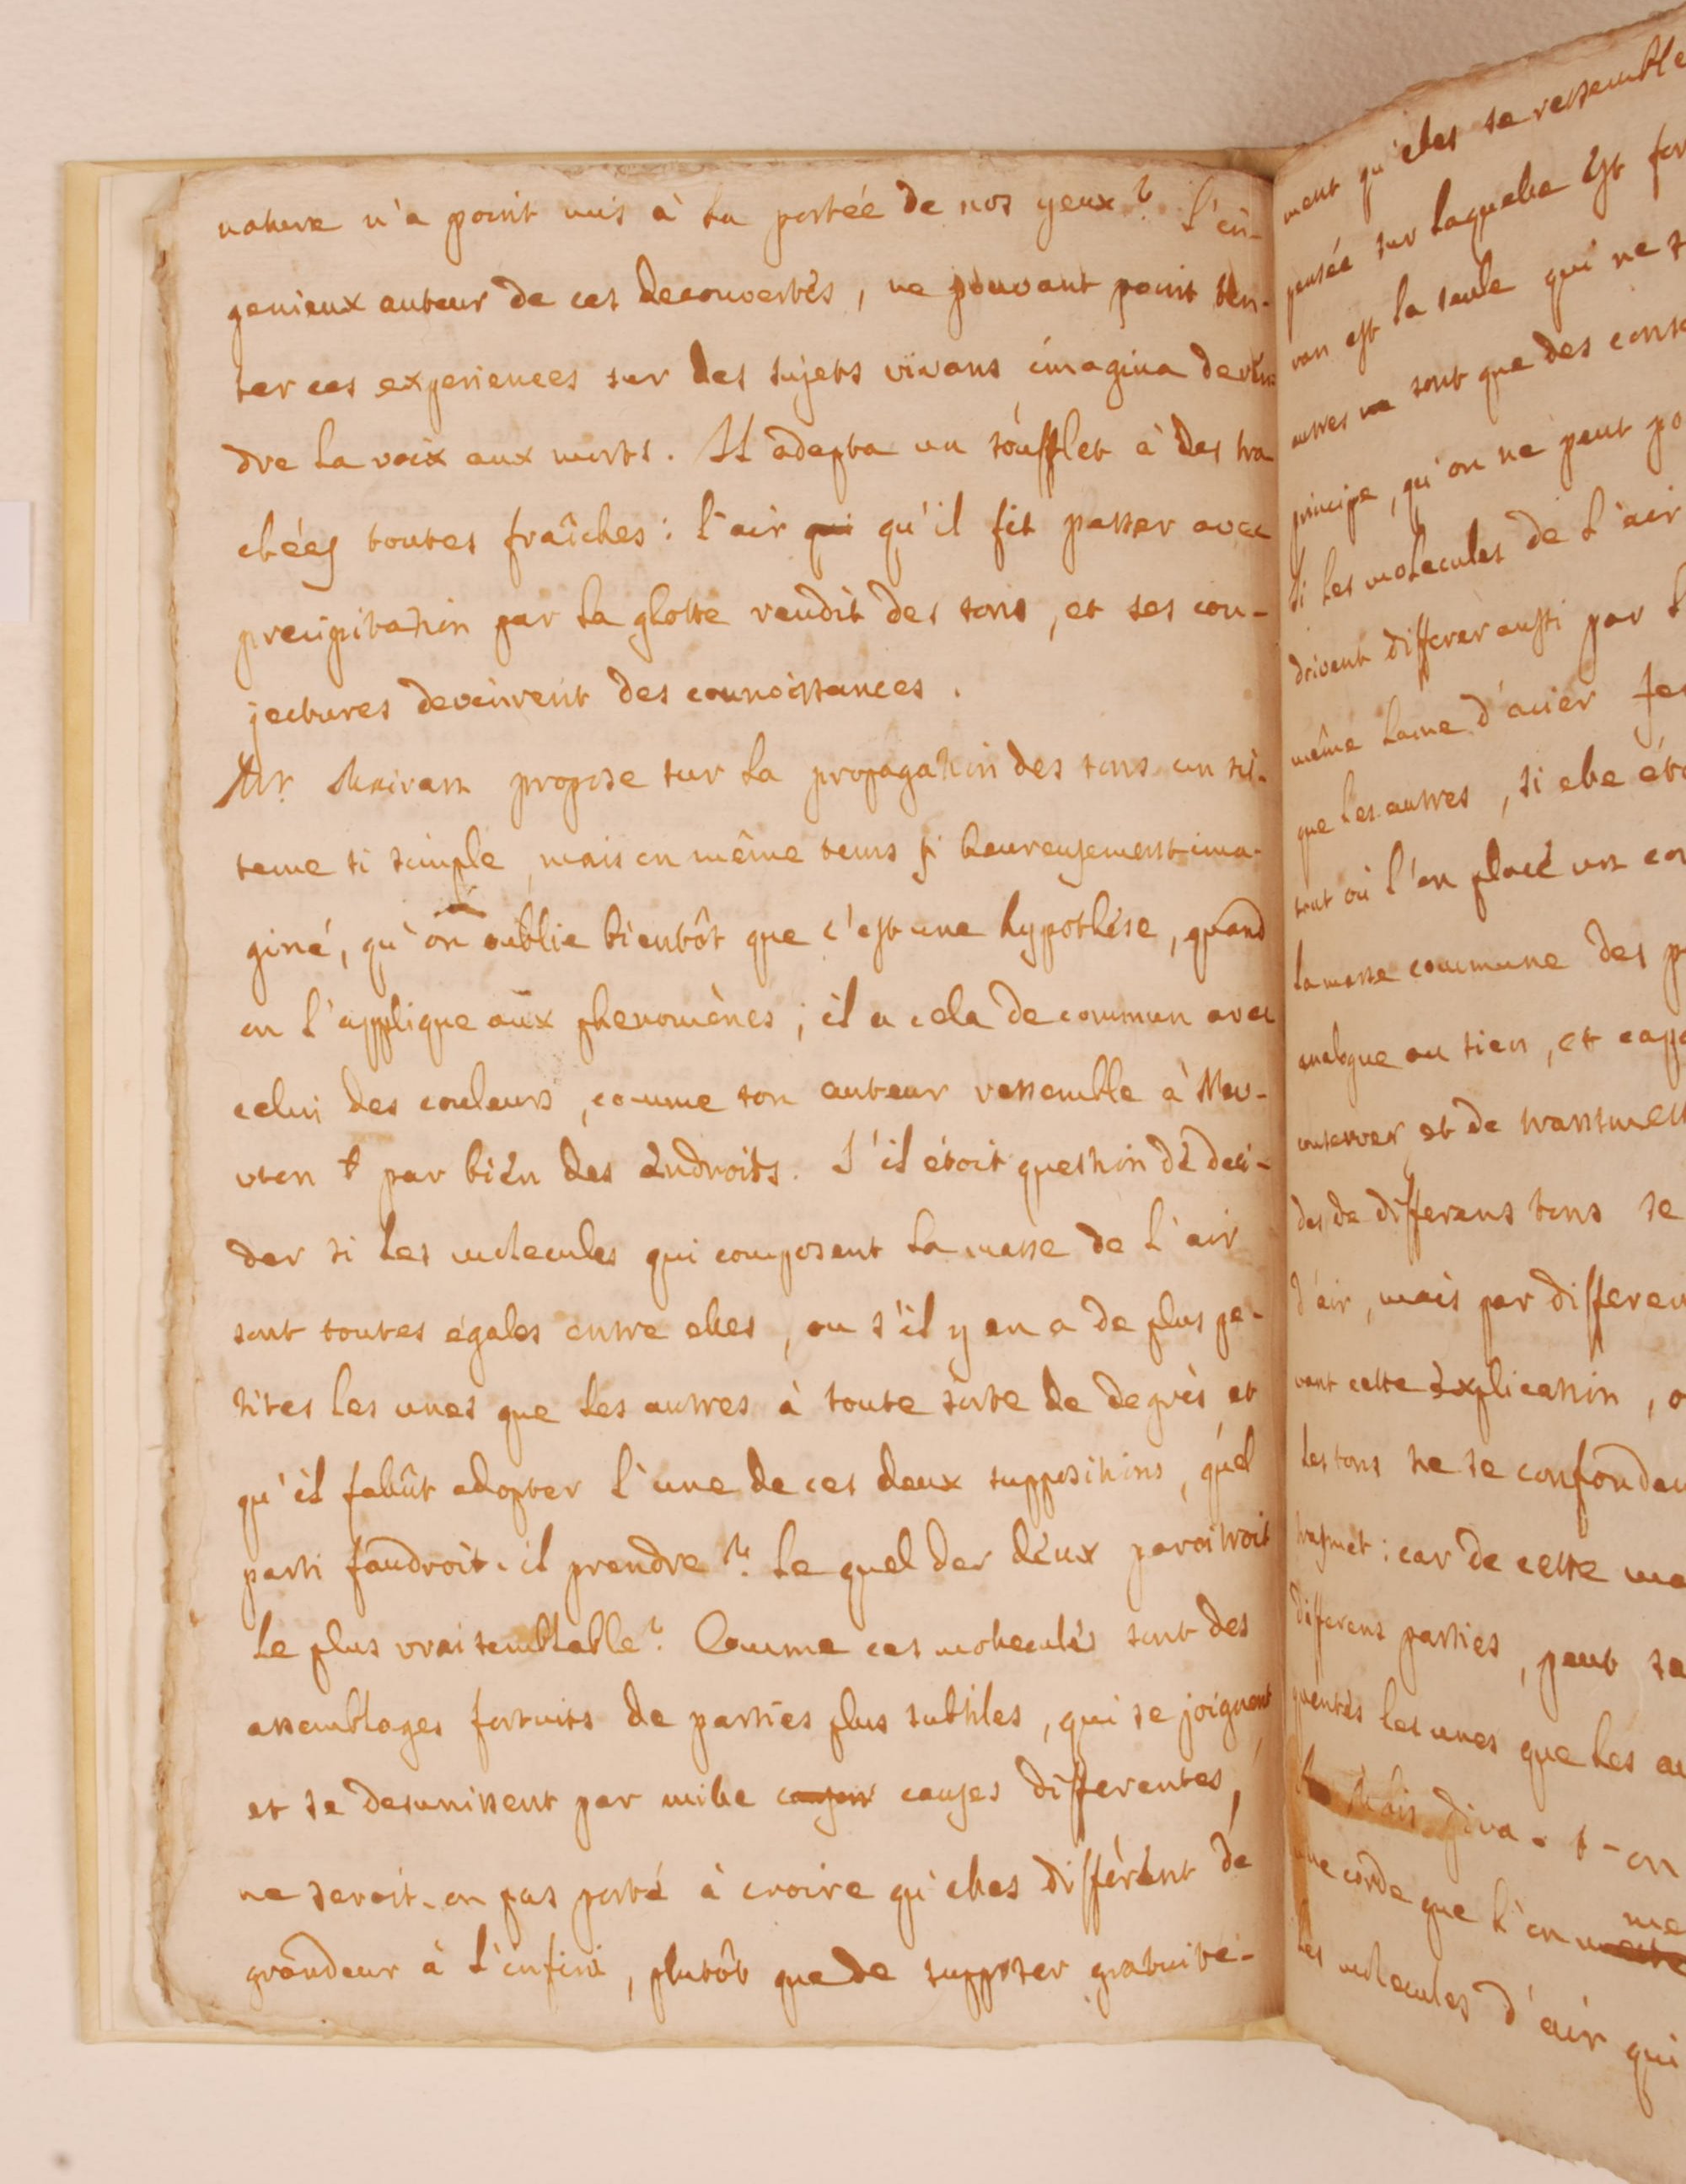 nature n'a point mis à la portée de nos yeux? L'in-
genieux auteur de ces decouvertes, ne pouvant point ten-
ter ces experiences sur des sujets vivans imagina de ren
dre la voix aux morts. Il adapta un soufflet à des tra
chées toutes fraîches: l'air qui qu'il fit passer avec
precipitation par la glotte rendit des sons, et ses con-
jectures devinrent des connoissances.
Mr. Mairan propose sur la propagation des sons un sis-
teme si simple, mais en même tems si heureusement ima-
giné, qu'on oublie bientôt que c'est une hypothèse, quand
on l'applique aux phenomènes; il a cela de commun avec
celui des couleurs, comme son auteur ressemble à New-
ton par bien des endroits. S'il étoit question de deci-
der si les molecules qui composent la masse de l'air
sont toutes égales entre elles, ou s'il y en a de plus pe-
tites les unes que les autres à toute sorte de degrés et
qu'il fallût adopter l'une de ces deux suppositions, quel
parti faudroit-il prendre? Le quel des deux paroitroit
le plus vraisemblable? Comme ces molecules sont des
assemblages fortuits de parties plus subtiles, qui se joignent
et se desunissent par mille causes differentes,
ne seroit-on pas porté à croire qu'elles different de
grandeur à l'infini, plutôt que de supposer gratuite-
ment qu'elles se ressemble
pensée sur laquelle est
van est la seule qui ne
autres ne sont que des
principe, qu'on ne peut
si les molecules de l'air
doivent differer aussi par
même lame d'acier
que les autres, si elle
tout où l'on place un
la masse commune des
analogue au sien, et
conserver et de
des de differens tons se
d'air, mais par
vant cette explication,
les tons ne se
trasmet: car de cette
differens parties, peut
les unes que les
Mais dira-t-on
une corde que l'on
me
les molecules d'air qui